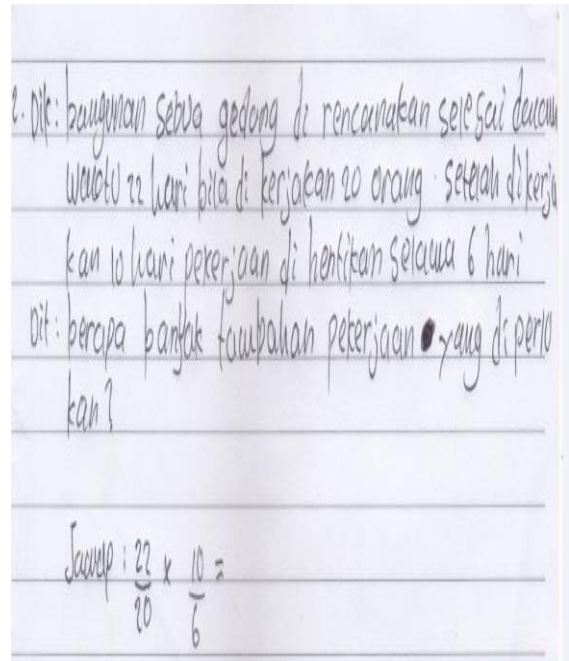 2. Dik: bangunan sebua gedong di rencanakan selesai dalam
waktu 22 hari bila di kerjakan 20 orang. setelah dikerja
kan 10 hari pekerjaan di hentikan selama 6 hari
Dit: berapa banyak tambahan pekerjaan yang diperlu
kan?
Jawap: 22/20 x 10/6 =